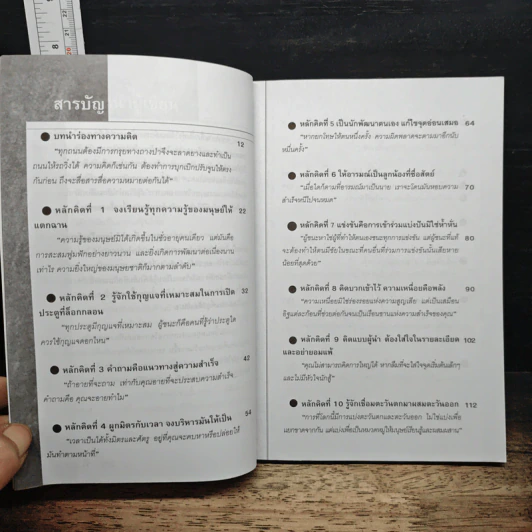 สารบัญ
บทนำร่องทางความคิด 12
"ทุกถนนต้องมีการกรุยทางถางป่าจึงจะลาดยางและทำเป็น
ถนนให้รถวิ่งได้ ความคิดก็เช่นกัน ต้องทำการบุกเบิกปรับขุนให้ตรง
กันก่อน ถึงจะสื่อสารสื่อความหมายต่อกันได้"
หลักคิดที่ 1 จงเรียนรู้ทุกความรู้ของมนุษย์ให้ 22
แตกฉาน
"ความรู้ของมนุษย์มิได้เกิดขึ้นในชั่วอายุคนเดียว แต่มันคือ
การสะสมฟูมฟักอย่างยาวนาน และยิ่งเกิดการพัฒนาต่อเนื่องนาน
เท่าไร ความยิ่งใหญ่ของมนุษยชาติก็มากตามลำดับ"
หลักคิดที่ 2 รู้จักใช้กุญแจที่เหมาะสมในการเปิด 32
ประตูที่ล็อกกลอน
"ทุกประตูมีกุญแจที่เหมาะสม ผู้ชนะก็คือคนที่รู้ว่าประตูใด
ควรใช้กุญแจดอกไหน"
หลักคิดที่ 3 คำถามคือแนวทางสู่ความสำเร็จ 42
"ถ้าอายที่จะถาม เท่ากับคุณอายที่จะประสบความสำเร็จ
คำถามคือ คุณจะอายทำไม"
หลักคิดที่ 4 ผูกมิตรกับเวลา จงบริหารมันให้เป็น 54
"เวลาเป็นได้ทั้งมิตรและศัตรู อยู่ที่คุณจะคบหาหรือปล่อยให้
มันทำตามหน้าที่"
หลักคิดที่ 5 เป็นนักพัฒนาตนเอง แก้ไขจุดอ่อนเสมอ 64
"หากอภัยให้ตนหนึ่งครั้ง ความผิดพลาดจะตามมาอีกนับ
หมื่นครั้ง"
หลักคิดที่ 6 ให้อารมณ์เป็นลูกน้องที่ซื่อสัตย์ 70
"เมื่อใดก็ตามที่อารมณ์มาเป็นนาย เราจะโดนมันหอบความ
สำเร็จหนีไปจนหมด"
หลักคิดที่ 7 แข่งขันคือการเข้าร่วมแบ่งปันมิใช่ห้ำหั่น 80
"ผู้ชนะหาใช่ผู้ที่ทำให้ตนเองชนะทุกการแข่งขัน แต่ผู้ชนะที่แท้
จะต้องทำให้ตนมีชัยในขณะที่คนอื่นที่ร่วมการแข่งขันนั้นเสียหาย
น้อยที่สุดด้วย"
หลักคิดที่ 8 คิดบวกเข้าไว้ ความเหนื่อยคือพลัง 90
"ความเหนื่อยมิใช่ร่องรอยแห่งความสูญเสีย แต่เป็นเสมือน
อิฐแต่ละก้อนที่ช่วยต่อกันจนเป็นเรือนชานแห่งความสำเร็จของคุณ"
หลักคิดที่ 9 คิดแบบผู้นำ ต้องใส่ใจในรายละเอียด 102
และอย่ายอมแพ้
"คุณไม่สามารถคิดการใหญ่ได้ หากลืมที่จะใส่ใจจุดเริ่มต้นเล็กๆ
และไม่มีหัวใจนักสู้"
หลักคิดที่ 10 รู้จักเชื่อมตะวันตกมาผสมตะวันออก 112
"การที่โลกนี้มีการแบ่งตะวันตกและตะวันออก ไม่ใช่แบ่งเพื่อ
แยกขาดจากกัน แต่แบ่งเพื่อเป็นหมวดหมู่ให้มนุษย์เรียนรู้และผสมผสาน"